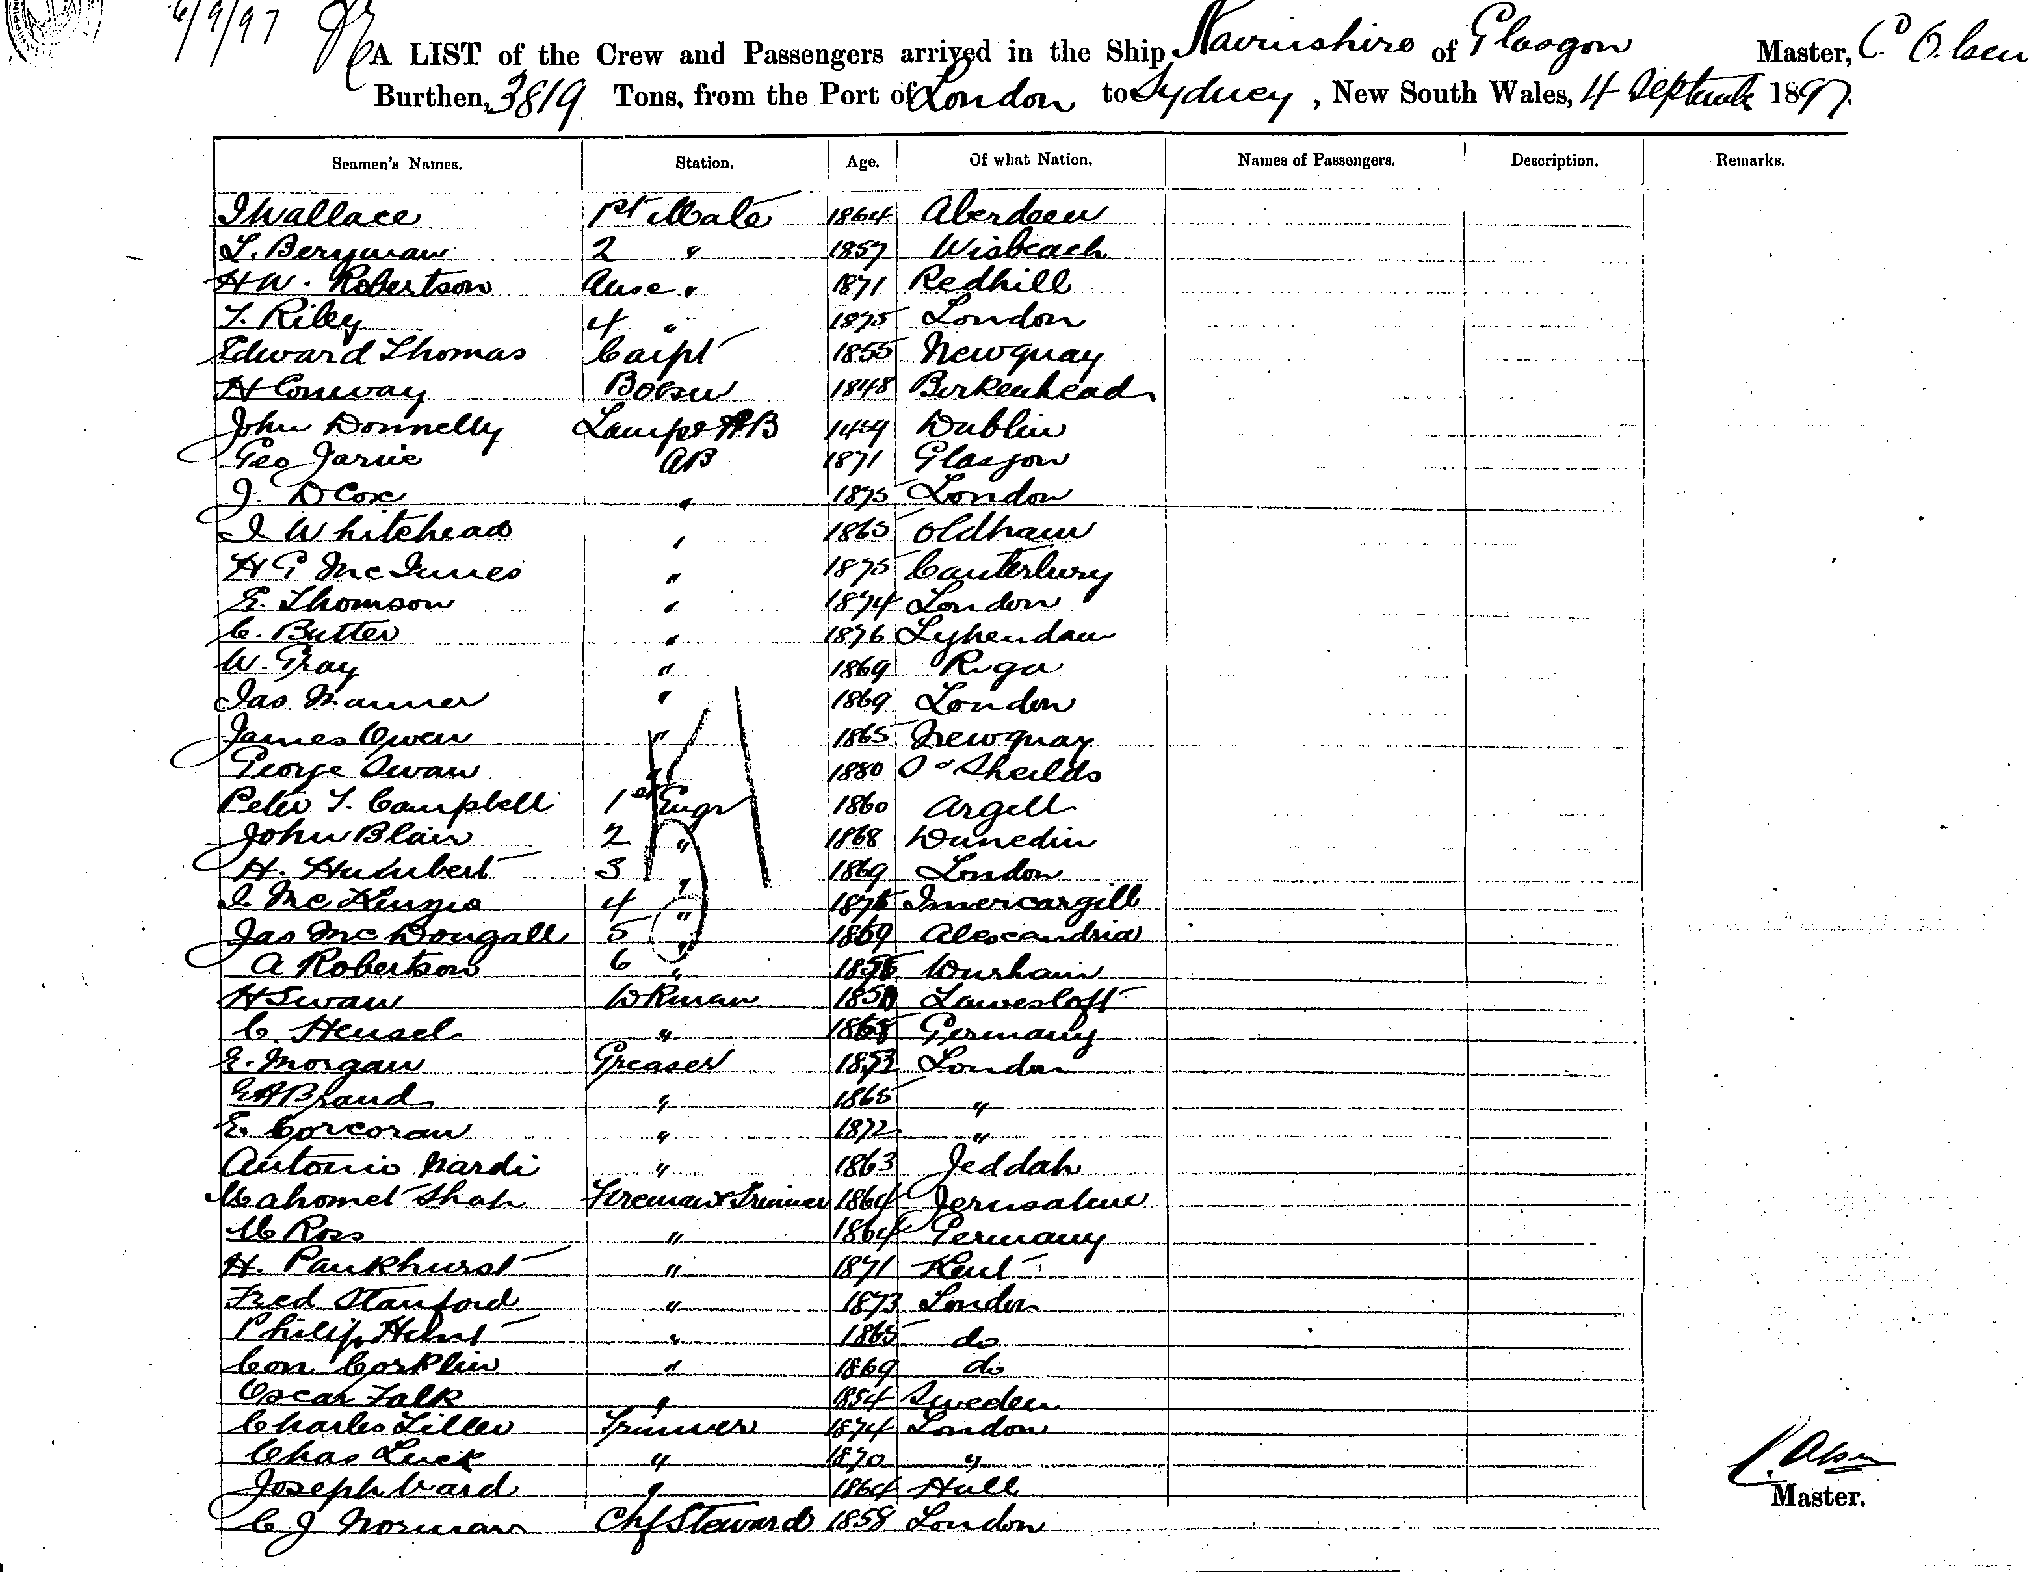 6/9/97
A LIST of the Crew and Passengers arrived in the Ship Nairnshire of Glasgow Master, C Olsen
Burthen, 3819 Tons, from the Port of London to Sydney, New South Wales, 4 September 1897.
Seamen's Names. Station. Age. Of what Nation. Names of Passengers. Description. Remarks.
J Wallace 1st Mate 1864 Aberdeen
L. Beryman 2 " 1857 Wisbeach
H W. Robertson " 1871 Redhill
T. Riley 4 " 1875 London
Edward Thomas Carpt 1855 Newquay
H Conway Bosun 1848 Birkenhead
John Donnelly Lamps & AB Dublin
Geo Jarvie AB 1871 Glasgow
J. D Cox " 1875 London
J Whitehead " 1865 Oldham
H G McInnes " 1875 Canterbury
E. Thomson " 1874 London
C. Butter " 1876
W. Gray " 1869 Riga
Jas Manner " 1869 London
James Owen " 1865 Newquay
George Swan " 1880 So Sheilds
Peter T. Campbell 1st Engr 1860 Argell
John Blair 2 " 1868 Dunedin
H. 3 " 1869 London
J. McKenzie 4 " Invercargill
Jas McDougall 5 " 1869 Alexandria
A Robertson 6 " Durham
H Swan DKman Lowesloft
C. Hensel " 1868 Germany
E. Morgan Greaser 1873 London
E A Brand " 1865 "
E. Corcoran " 1872 "
Antonio Nardi " 1863 Jeddah
Mahomet Shah Fireman & Trimmer 1864 Jerusalem
M Ross " 1864 Germany
H. Pankhurst " 1871 Kent
Fred Stanford " 1873 London
Philip Hunt " 1865 do
Con Corklin " 1869 do
Oscar Falk " 1854 Sweden
Charles Tiller Trimmer 1874 London
Chas Luck " 1870 "
Joseph Ward " 1864 Hull
C J Norman Chf Steward 1858 London
C. Olsen
Master.